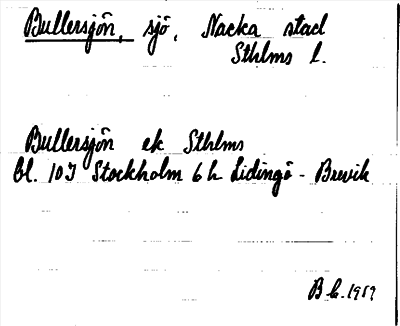 Bullersjön, sjö, Nacka stad
Sthlms l.
Bullersjön ek Sthlms
bl. 10I Stockholm 6h Lidingö - Brevik